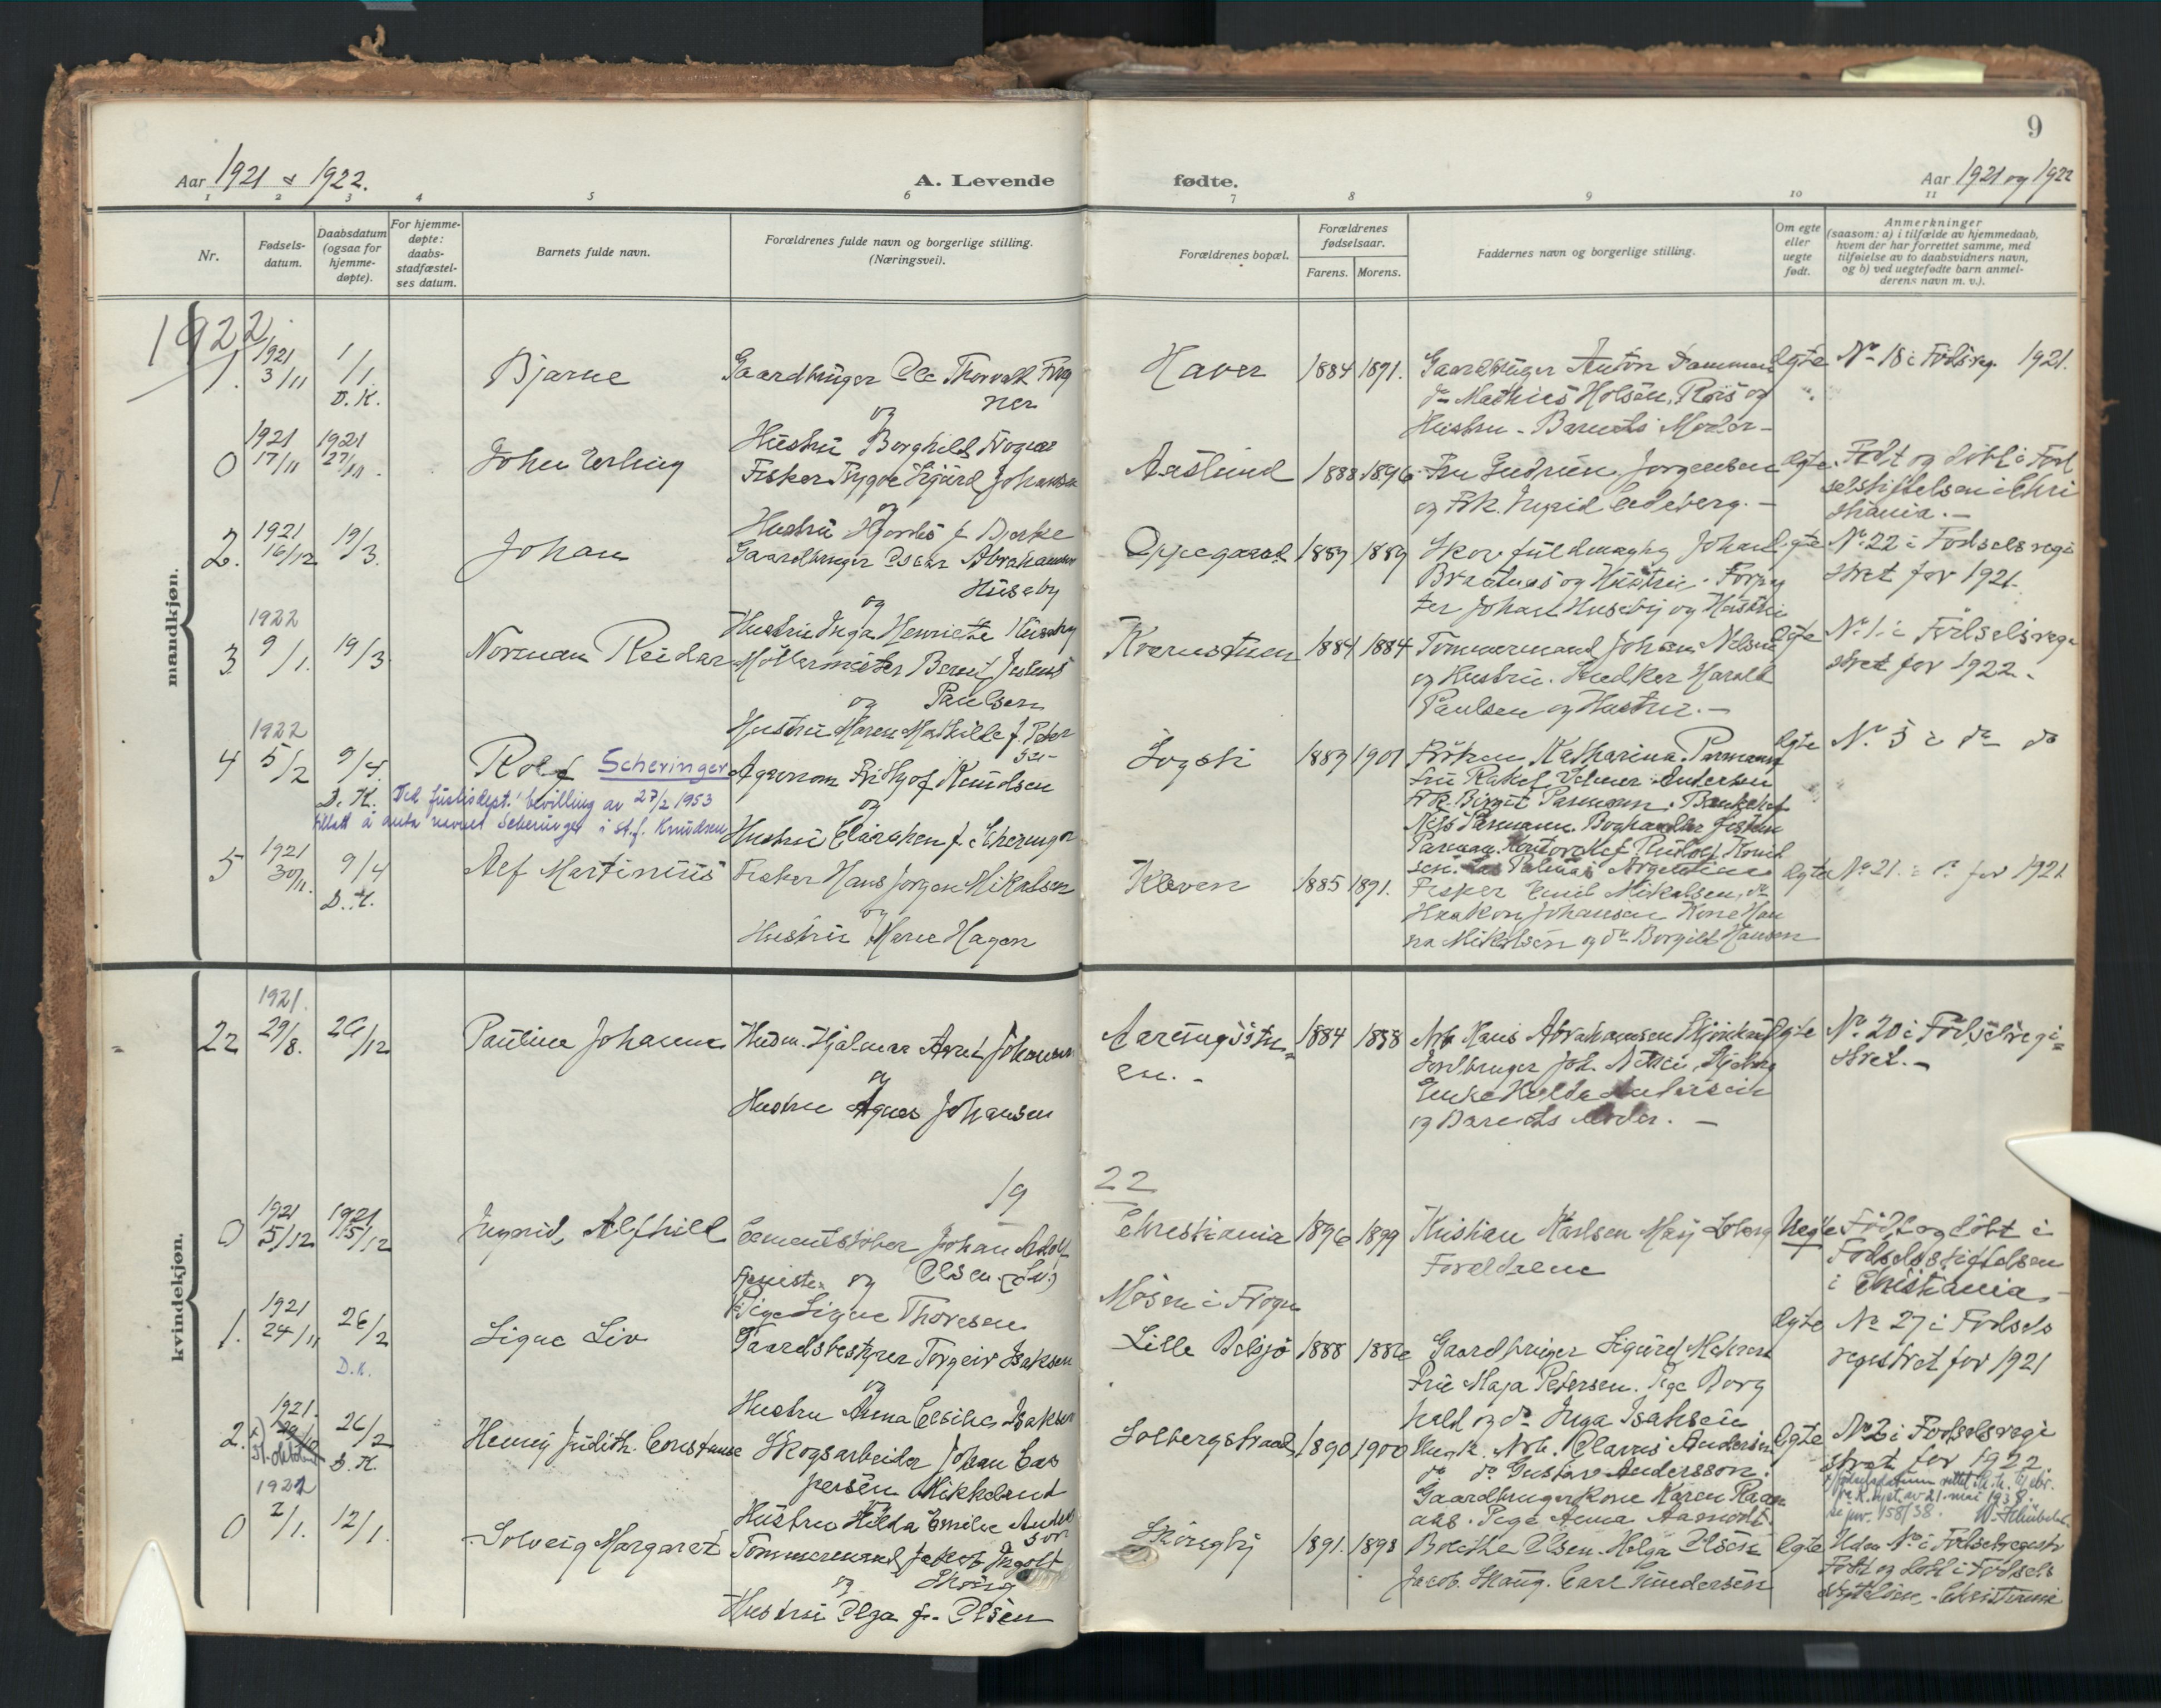 9
Aar 1921 & 1922.
A. Levende
fødte.
Aar 1921 og 1922
1 2 3 4 5 6 7 8 9 10 11
Nr.
Fødsels-
datum.
Daabsdatum
(ogsaa for
hjemme-
døpte).
For hjemme-
døpte:
daabs-
stadfæstel-
ses datum.
Barnets fulde navn.
Forældrenes fulde navn og borgerlige stilling.
(Næringsvei).
Forældrenes bopæl.
Forældrenes
fødselsaar.
Farens. Morens.
Faddernes navn og borgerlige stilling.
Om egte
eller
uegte
født.
Anmerkninger
(saasom: a) i tilfælde av hjemmedaab,
hvem der har forrettet samme, med
tilføielse av to daabsvidners navn,
og b) ved uegtefødte barn anmel-
derens navn m. v.).
mandkjøn.
1922
1.
1921
3/11
1/1
D. K.
Bjarne
Gaardbruger Ole Thorvald Frog
ner
og
Hustru Borghild Frogner
Haver
1884 1891.
Gaardbruger Anton Dammen
do Mathias Holsen, Røis og
Hustru - Barnets Moder -
Egte
No 18 i Fødsreg. 1921.
0
1921
17/11
1921
27/11.
John Erling
Fisker Trygve Sigurd Johansen
og
Hustru Hjordis f. Bjerke
Aaslund
1888 1896
Fru Gudrun Jørgensen
og Frk. Ingrid Cedeberg. -
Egte
Født og døbt i Fød
selsstiftelsen i Chri
stiania. -
2.
1921
16/12
19/3.
Johan
Gaardbruger Oscar Abrahamsen
Huseby
og
Hustru Inga Henriette Huseby
Oppegaard
1889 1889
Skovfuldmægtig Johan
Braatnes og Hustru. Forpag
ter Johan Huseby og Hustru
Egte
No 22 i Fødselsregi
stret for 1921.
3
1922
9/1.
19/3
Norman Reidar
Møllermester Bernt Julius
Paulsen
og
Hustru Maren Mathilde f. Peter
sen
Kvernstuen
1884 1884
Tømmermand Johan Nilsen
og Hustru. Snedker Harald
Paulsen og Hustru. -
Egte
No 1. i Fødselsregi
stret for 1922.
4
1922
5/2
9/4.
D. K.
Rolf Scheringer
Ved Justisdept.' bevilling av 27/2 1953
tillatt å anta navnet Scheringer i st. f. Knudsen
Agronom Fridtjof Knudsen
og
Hustru Clara f. Scheringer
Sogsti
1889 1901
Frøken Katharina Parmann
Fru Rakel Andersen
Frk. Birgit Parmann. Bankchef
Nils Parmann. Boghandler
Parmann. Kontorchef Rudolf Knud
sen. Las Palmas Argentina
Egte
No 3 i do do
5
1921
30/11.
9/4
D. K.
Alf Martinius
Fisker Hans Jørgen Mikalsen
og
Hustru Marie Hagen
Kloven
1885 1891.
Fisker Emil Mikalsen, do
Haakon Johansen Kone Han
na Mikalsen og do Borgild Hansen
Egte
No 21. i do for 1921
kvindekjøn.
22
1921.
29/8.
26/12
Pauline Johanne
Husm. Hjalmar Arnt Johansen
og
Hustru Agnes Johansen
Aarungsstu=
en. -
1884 1888
Arb. Hans Abrahamsen
Jordbruger Joh.
Enke Hulda Andersen
og Barnets Moder. -
Egte
No 20 i Fødselsregi=
stret. -
19 22
0
1921
5/12
1921
15/12
Ingrid, Alfhild
Cementstøber Johan Adolf
Olsen (Sv.)
og
Pige Signe Thoresen
Christiania
Mosen i Frogn
1896 1899
Kristian Karlsen Mary Soberg
Foreldrene
Uegte
Født og døbt i
Fødselsstiftelsen
i Christiania.
1.
1921
24/11
26/2
D. K.
Signe Liv
Gaardsbestyrer Torgeir Isaksen
og
Hustru Anna Cecilie Isaksen
Lille Belsjø
1888 1886
Gaardbruger Sigurd
Fru Maja Petersen. Pige Borg
hild og do Inga Isaksen
Egte
No 27 i Fødsels
registret for 1921
2.
1921.
x) 29/10
31. oktober
26/2
D. K.
Henny Judith Constanse
Skogsarbeider Johan Cas
persen Mikkelrud
Hustru Hilda Emilie Anders
son
Solbergstrand
1890 1900
Ungk. Arb. Olavus Andersen
do do Gustav Andersson.
Gaardbrugerkone Karen Raan
aas. Pige Anna Aamodt
Egte
No 2 i Fødselsregi
stret for 1922.
x) Fødselsdatum rettet
av 21. mai 1938.
se jnr. 158/38.
0
1922
2/1.
12/1.
Solveig Margaret
Tømmermand Jakob Ingolf
Skoug
og
Hustru Olga f. Olsen
Skorgby
1891. 1898
Borthe Olsen. Helga Olsen
Jacob Skaug. Carl Gundersen
Egte
Uden No i Fødselsregistr
Født og døbt i Fødsels
stiftelsen - Christiania